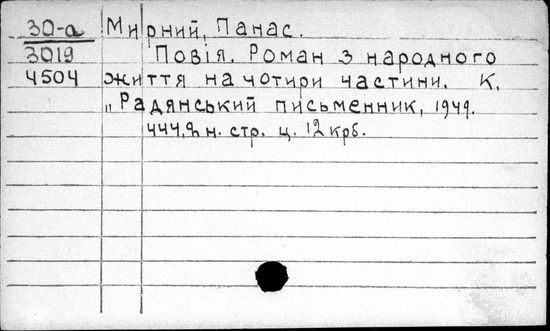 30-а Мирний, Панас.
3019 Повія. Роман з народного
4504 життя на чотири частини. К.
„Радянський письменник, 1949.
444,2 н. стр. ц. 12 крб.